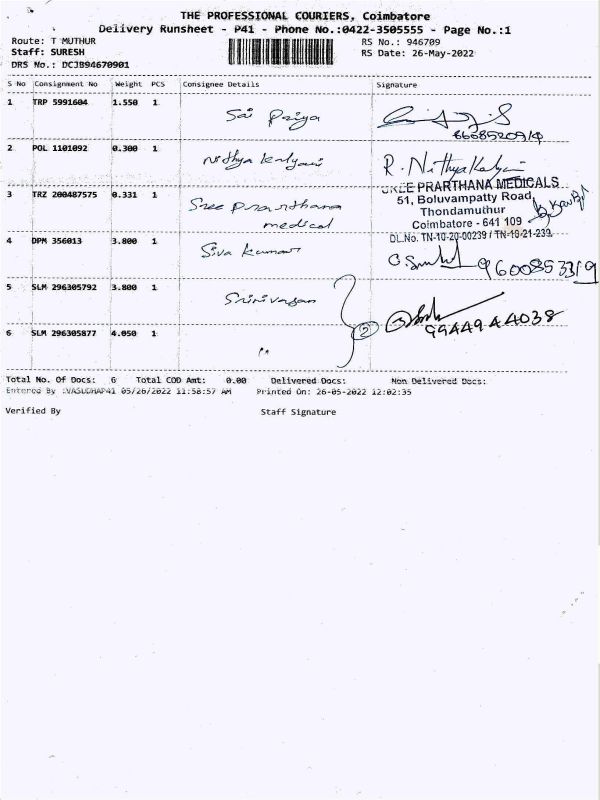 THE PROFESSIONAL COURIERS, Coimbatore
Delivery Runsheet - P41 - Phone No.:0422-3505555 - Page No.:1
Route: T MUTHUR
RS No.: 946709
Staff: SURESH
RS Date: 26-May-2022
DRS No.: DCJB94670901
S No Consignment No Weight PCS Consignee Details Signature
1 TRP 5991604 1.550 1 Sai Priya
2 POL 1101092 0.300 1 Nithya Kalyani R. Nithya Kalyani
3 TRZ 200487575 0.331 1 Sree Prarthana medical
SREE PRARTHANA MEDICALS
51, Boluvampatty Road,
Thondamuthur
Coimbatore - 641 109
D.L.No. TN-10-20-00239 / TN-10-21-239.
4 DPM 356013 3.800 1 Siva Kumar 9600853319
5 SLM 296305792 3.800 1 Srinivasan
2 9944944038
6 SLM 296305877 4.050 1 "
Total No. Of Docs: 6 Total COD Amt: 0.00 Delivered Docs: Non Delivered Docs:
Entered By :VASUDHAP41 05/26/2022 11:58:57 AM Printed On: 26-05-2022 12:02:35
Verified By Staff Signature